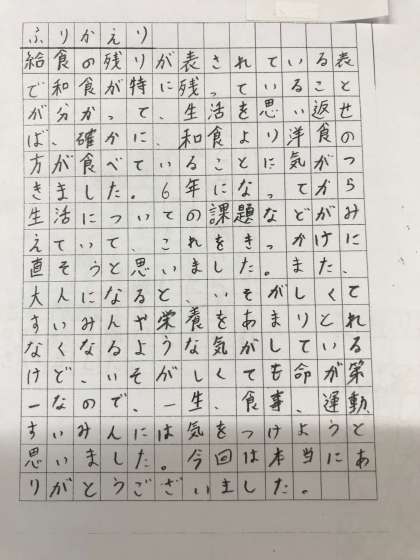 ふりかえり
給食の残りが表されている表
で和食が特に残っていること
が分かって、生活を思い返せ
ば、確かに、和食より洋食の
方が食べていることに気がつ
きました。6年になってから
生活についての課題などがみ
えていて、これをきっかけに
直そうと思いました。また、
大人になると、いそがしくて
すいみんや栄養をあまりとれ
なくなるような気がしている
けど、いそがしくても命が第
一なので、一生、食事、運動、
すいみんには気をつけようと
思いました。今回は本当にあ
りがとうございました。